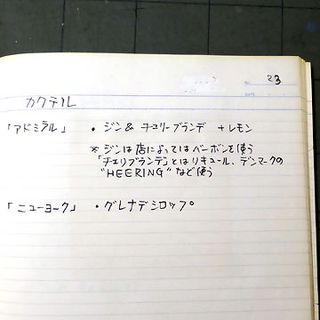 23
カクテル
「アドミラル」 ・ ジン & チェリーブランデ +レモン
※ ジンは店によってはバーボンを使う
「チェリブランデ」とはリキュール、デンマークの
"HEERING" など使う
「ニューヨーク」 ・グレナデシロップ